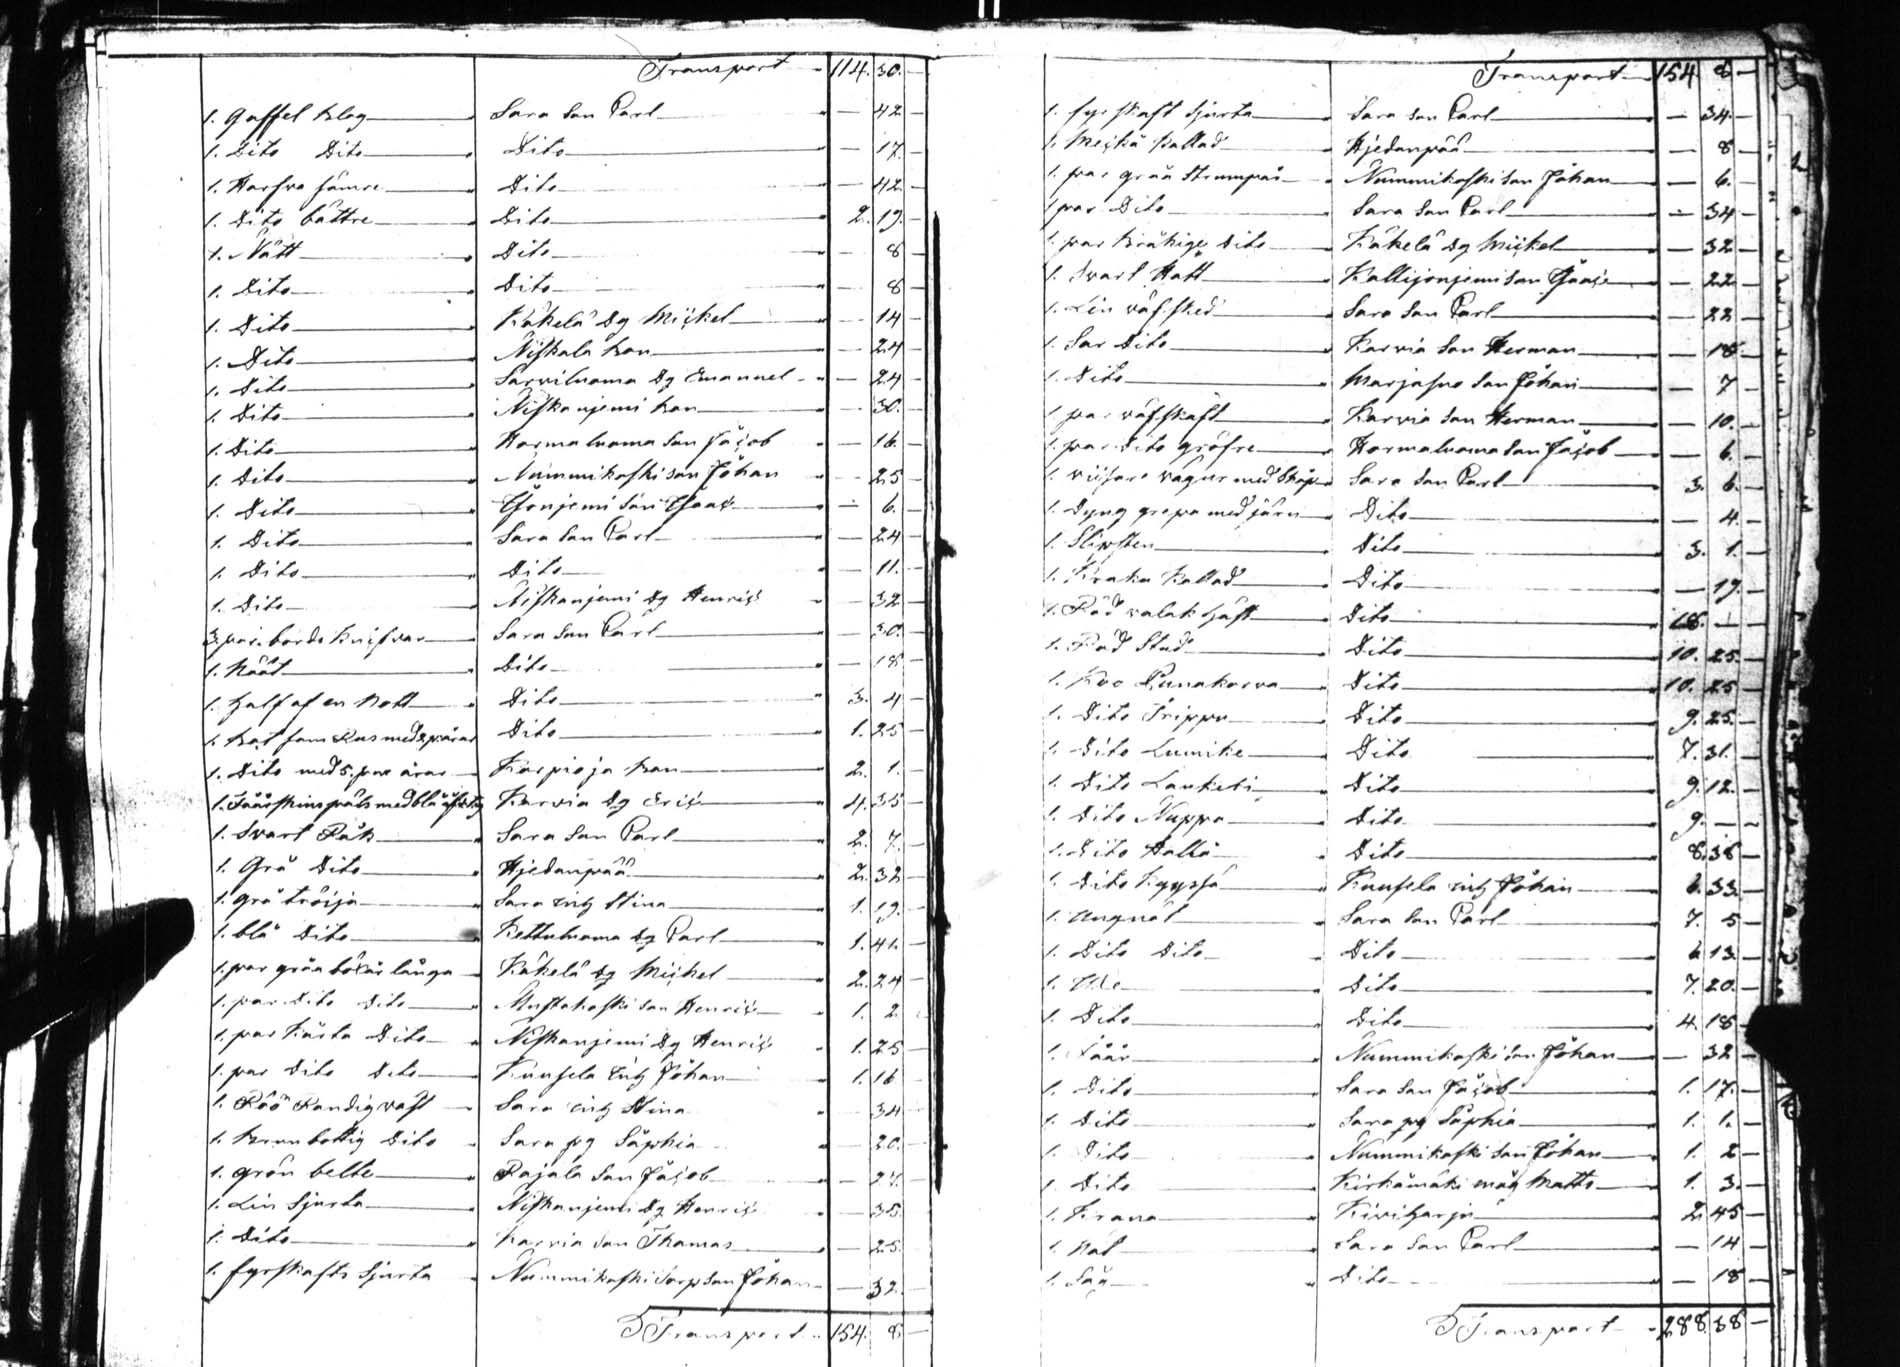 Transport 114. 30.
1. gaffel klog Sara Son Carl — 42
1. Dito Dito Dito — 17.
1. Harfva sämre Dito — 42
1. Dito bättre Dito 2. 19.
1. Nätt Dito — 8
1. Dito Dito — 8
1. Dito Käkelä Dg Mickel 14
1. Dito Niskala kan — 24
1. Dito Sarviluama Dg Emanuel — 24
1. Dito Niskanjemi kan — 30.
1. Dito Harmaluama San Jacob — 16
1. Dito Nummikoski san Johan — 25
1. Dito — 6.
1. Dito Sara San Carl — 24
1. Dito Dito — 11.
1. Dito Niskanjemi Dg Henric — 32
3. par. bords knifvar Sara San Carl — 30.
1. Nååt Dito — 18
1. half af en Nott Dito 3. 4
1. Båt fam Rus med 2 p årar Dito 1. 25
1. Dito med 5. par årar Karpioja kan 2. 1.
1. Fåårskins päls med blå Karvia Dg Eric 4. 35
1. Svart Råk Sara San Carl 2. 7.
1. Grå Dito Hjedanpää 2. 32
1. grå tröija Sara Stina 1. 19.
1. blå Dito Kettuluama Dg Carl 1. 41.
1. par gråa böxår långa Käkelä Dg Mickel 2. 24
1. par Dito Dito Mustakoski san Henric 1. 2
1. par kårta Dito Niskanjemi Dg Henric 1. 25
1. par Dito Dito Kuusela Johan 1. 16
1. Röö Randig väst Sara Stina 34
1. Brun bottig Dito Sara pg Såphia 20.
1. grön belte Rajala San Jacob — 27.
1. Lin Sjurta Niskanjemi Dg Henric — 35
1. Dito Karvia San Thamas — 25.
1. fyrskafts Sjurta Nummikoski Sarp San Johan — 32.
Transport 154. 8
Transport 154. 8
1. fyrskaft Sjurta Sara San Carl — 34.
1. Kallad Hjedanpää — 8
1. par gråa Strumpår Nummikoski San Johan — 6.
1 par Dito Sara San Carl — 34
1. par Dito Käkelä Dg Mickel — 32
1. Svart Hatt — 22
1. Lin väfsked Sara San Carl — 22
1. Sar Dito Karvia San Herman — 18
1. Dito San Johan — 7
1. par väfskäft Karvia San Herman — 10.
1. par Dito gröfre Harmaluama San Jacob — 6.
1. med Skåp Sara San Carl 3. 6.
1. Dyng grepa med järn Dito — 4.
1. Slipsten Dito 3. 1.
1. Kallad Dito — 19.
1. Röd valak häst Dito 18. —
1. Röd Stud Dito 10. 25.
1. Koo Punakorva Dito 10. 25
1. Dito Trippu Dito 9. 25.
1. Dito Lumike Dito 7. 31.
1. Dito Dito 9. 12.
1. Dito Nuppa Dito 9. —
1. Dito Halla Dito 8. 38
1. Dito Kuusela Johan 6. 33.
1. ungnöt Sara San Carl 7. 5
1. Dito Dito Dito 6 13.
1. Dito 7. 20.
1. Dito Dito 4. 18
1. Fåår Nummikoski San Johan — 32
1. Dito Sara San Jacob 1. 17.
1. Dito Sara pg Såphia 1. 1.
1. Dito Nummikoski San Johan 1. 2
1. Dito Kirkämäki måg Matts 1. 3.
1. Krana Kiviharju 2. 45
1. Sara San Carl — 14
1. Såg Dito — 18
Transport 288 38